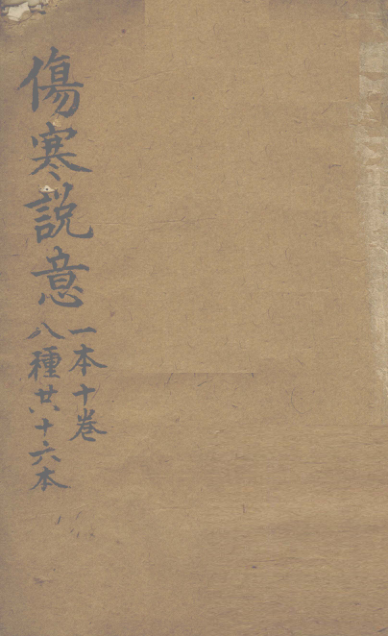 傷寒說意
一本十卷
八種共十六本